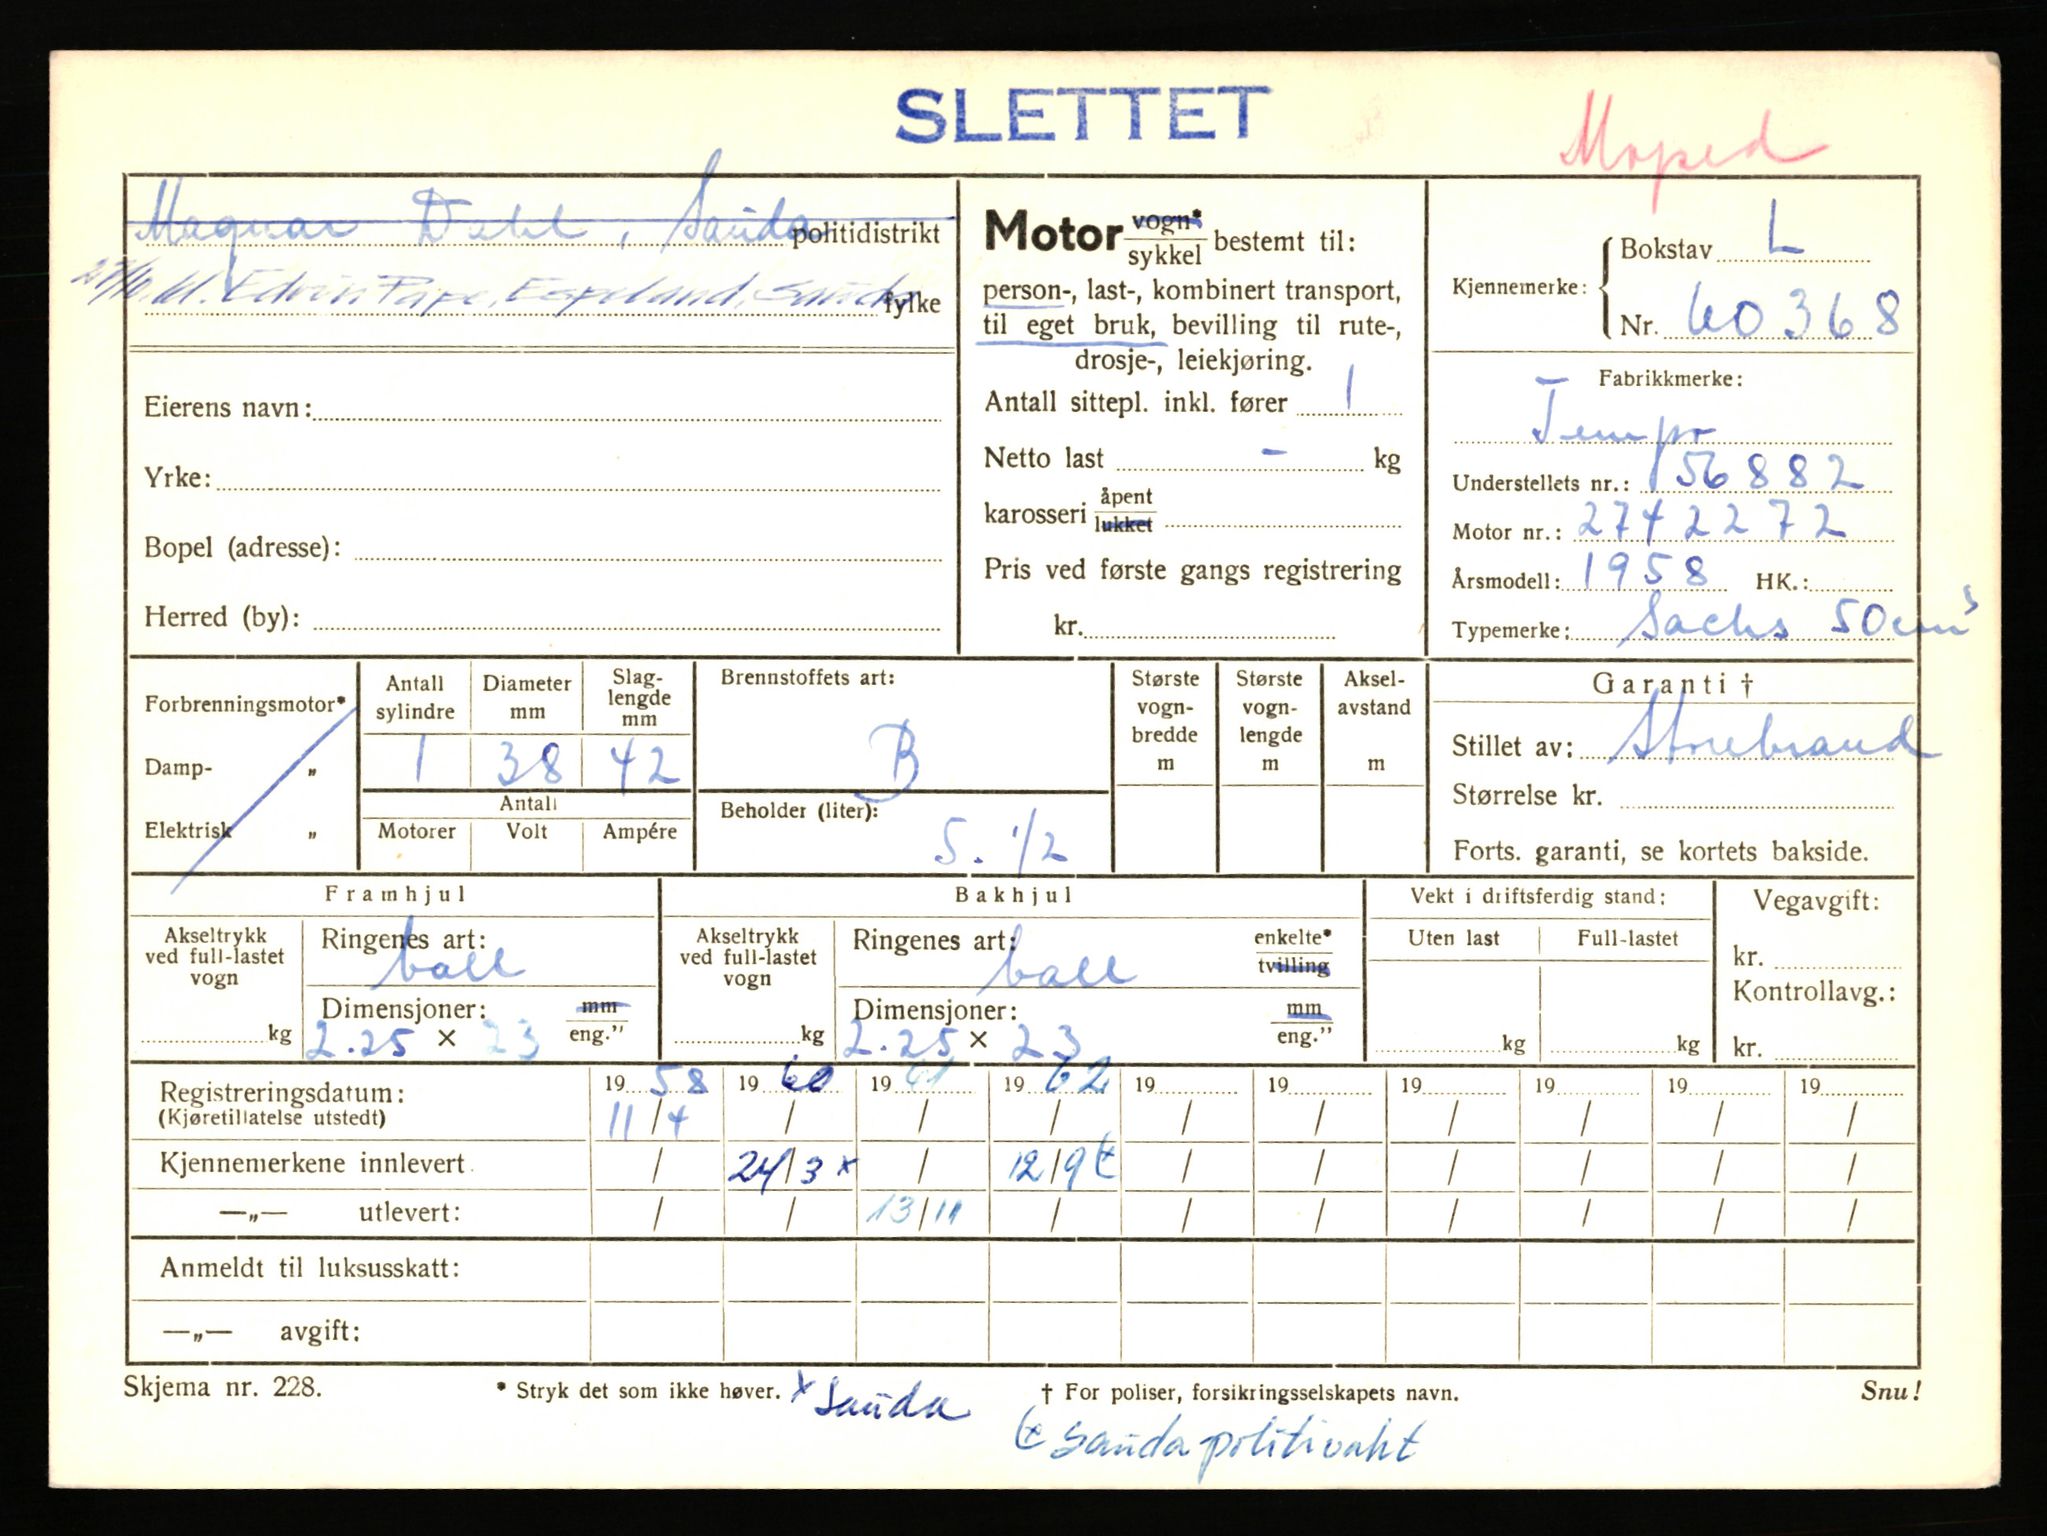 SLETTET
Moped
Magnar Dahl, Sauda politidistrikt
Edvin Pape, Espeland, Sauda fylke
Eierens navn:
Yrke:
Bopel (adresse):
Herred (by):
Motor vogn*
sykkel bestemt til:
person-, last-, kombinert transport,
til eget bruk, bevilling til rute-,
drosje-, leiekjøring.
Antall sittepl. inkl. fører 1
Netto last - kg
karosseri åpent
lukket
Pris ved første gangs registrering
kr.
Kjennemerke: Bokstav L
Nr. 60368
Fabrikkmerke:
Tempo
Understellets nr.: 156882
Motor nr.: 2742272
Årsmodell: 1958 HK.:
Typemerke: Sachs 50cm³
Forbrenningsmotor*
Damp- „
Elektrisk „
Antall sylindre Diameter mm Slag-lengde mm
1 38 42
Antall
Motorer Volt Ampére
Brennstoffets art:
B
Beholder (liter):
5. 1/2
Største vogn-bredde m
Største vogn-lengde m
Aksel-avstand m
Garanti †
Stillet av: Storebrand
Størrelse kr.
Forts. garanti, se kortets bakside.
Framhjul
Akseltrykk ved full-lastet vogn
kg
Ringenes art:
ball
Dimensjoner: mm
2.25 × 23 eng.”
Bakhjul
Akseltrykk ved full-lastet vogn
kg
Ringenes art: enkelte*
ball tvilling
Dimensjoner: mm
2.25 × 23 eng.”
Vekt i driftsferdig stand:
Uten last Full-lastet
kg kg
Vegavgift:
kr.
Kontrollavg.:
kr.
Registreringsdatum: 19 58 19 60 19 61 19 62 19 19 19 19 19 19
(Kjøretillatelse utstedt) 11/4 / / / / / / / / /
Kjennemerkene innlevert / 24/3 x / 12/9 (x / / / / / /
—„— utlevert: / / 13/11 / / / / / / /
Anmeldt til luksusskatt:
—„— avgift:
Skjema nr. 228. * Stryk det som ikke høver. x Sauda † For poliser, forsikringsselskapets navn. Snu!
(x Sauda politivakt